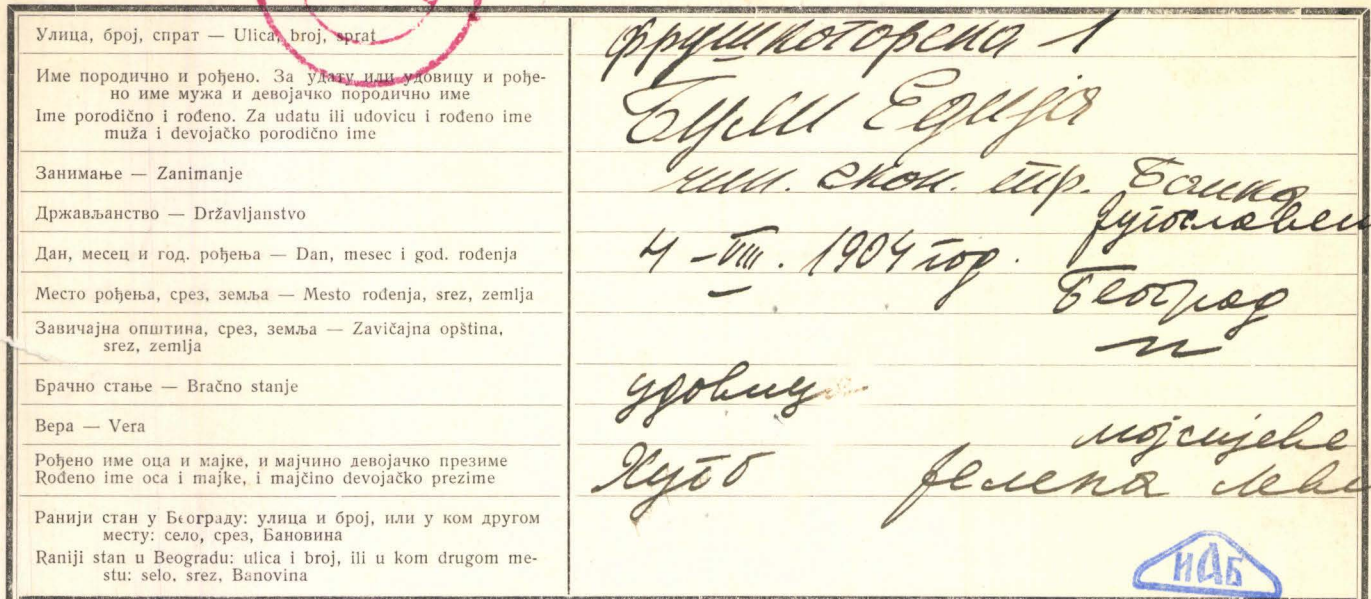 Улица, број, спрат — Ulica, broj, sprat
фрушкогорска 1
Име породично и рођено. За удату или удовицу и рође-
но име мужа и девојачко породично име
Ime porodično i rođeno. Za udatu ili udovicu i rođeno ime
muža i devojačko porodično ime
Були Едија
Занимање — Zanimanje
чин. екон. тр. Банка
Држављанство — Državljanstvo
југословен
Дан, месец и год. рођења — Dan, mesec i god. rođenja
4 - VIII. 1904 год.
Место рођења, срез, земља — Mesto rođenja, srez, zemlja
Београд
Завичајна општина, срез, земља — Zavičajna opština,
srez, zemlja
Брачно стање — Bračno stanje
удовица
Вера — Vera
мојсијеве
Рођено име оца и мајке, и мајчино девојачко презиме
Rođeno ime oca i majke, i majčino devojačko prezime
Јелена Леви
Ранији стан у Београду: улица и број, или у ком другом
месту: село, срез, Бановина
Raniji stan u Beogradu: ulica i broj, ili u kom drugom me-
stu: selo, srez, Banovina
ИАБ